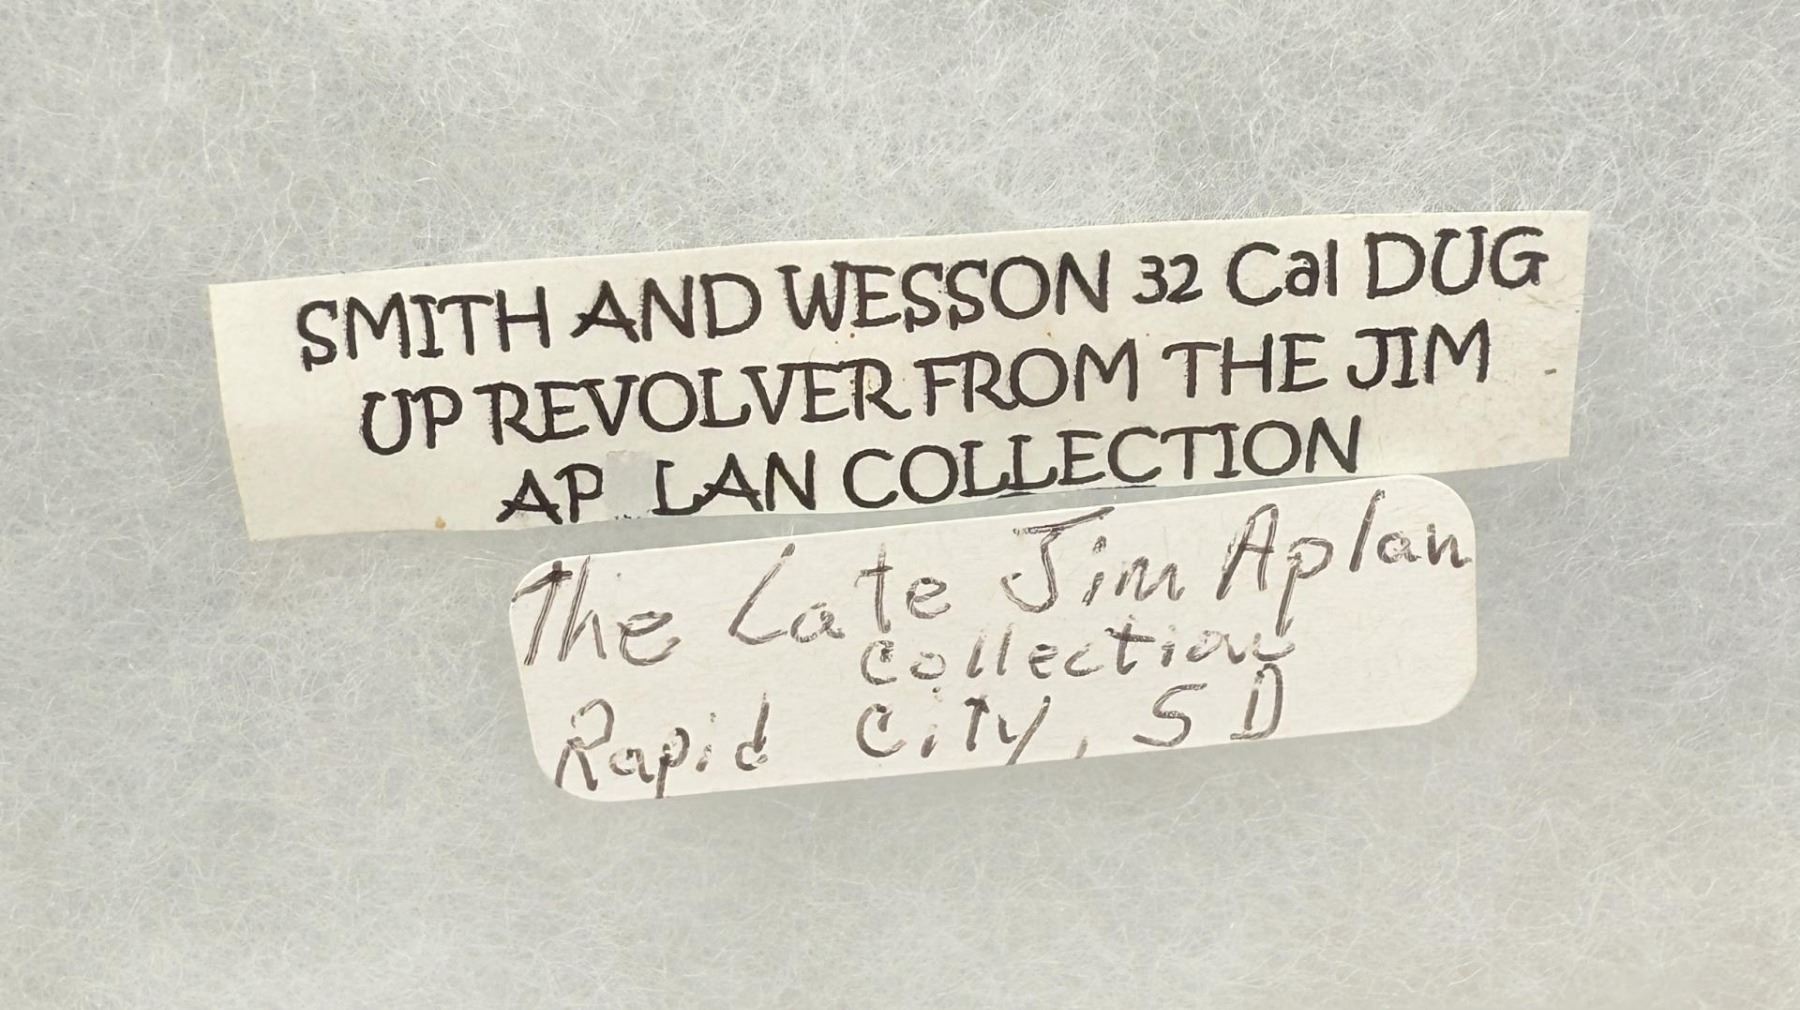 SMITH AND WESSON 32 Cal DUG
UP REVOLVER FROM THE JIM
AP LAN COLLECTION
The Late Jim Aplan
collection
Rapid City, SD